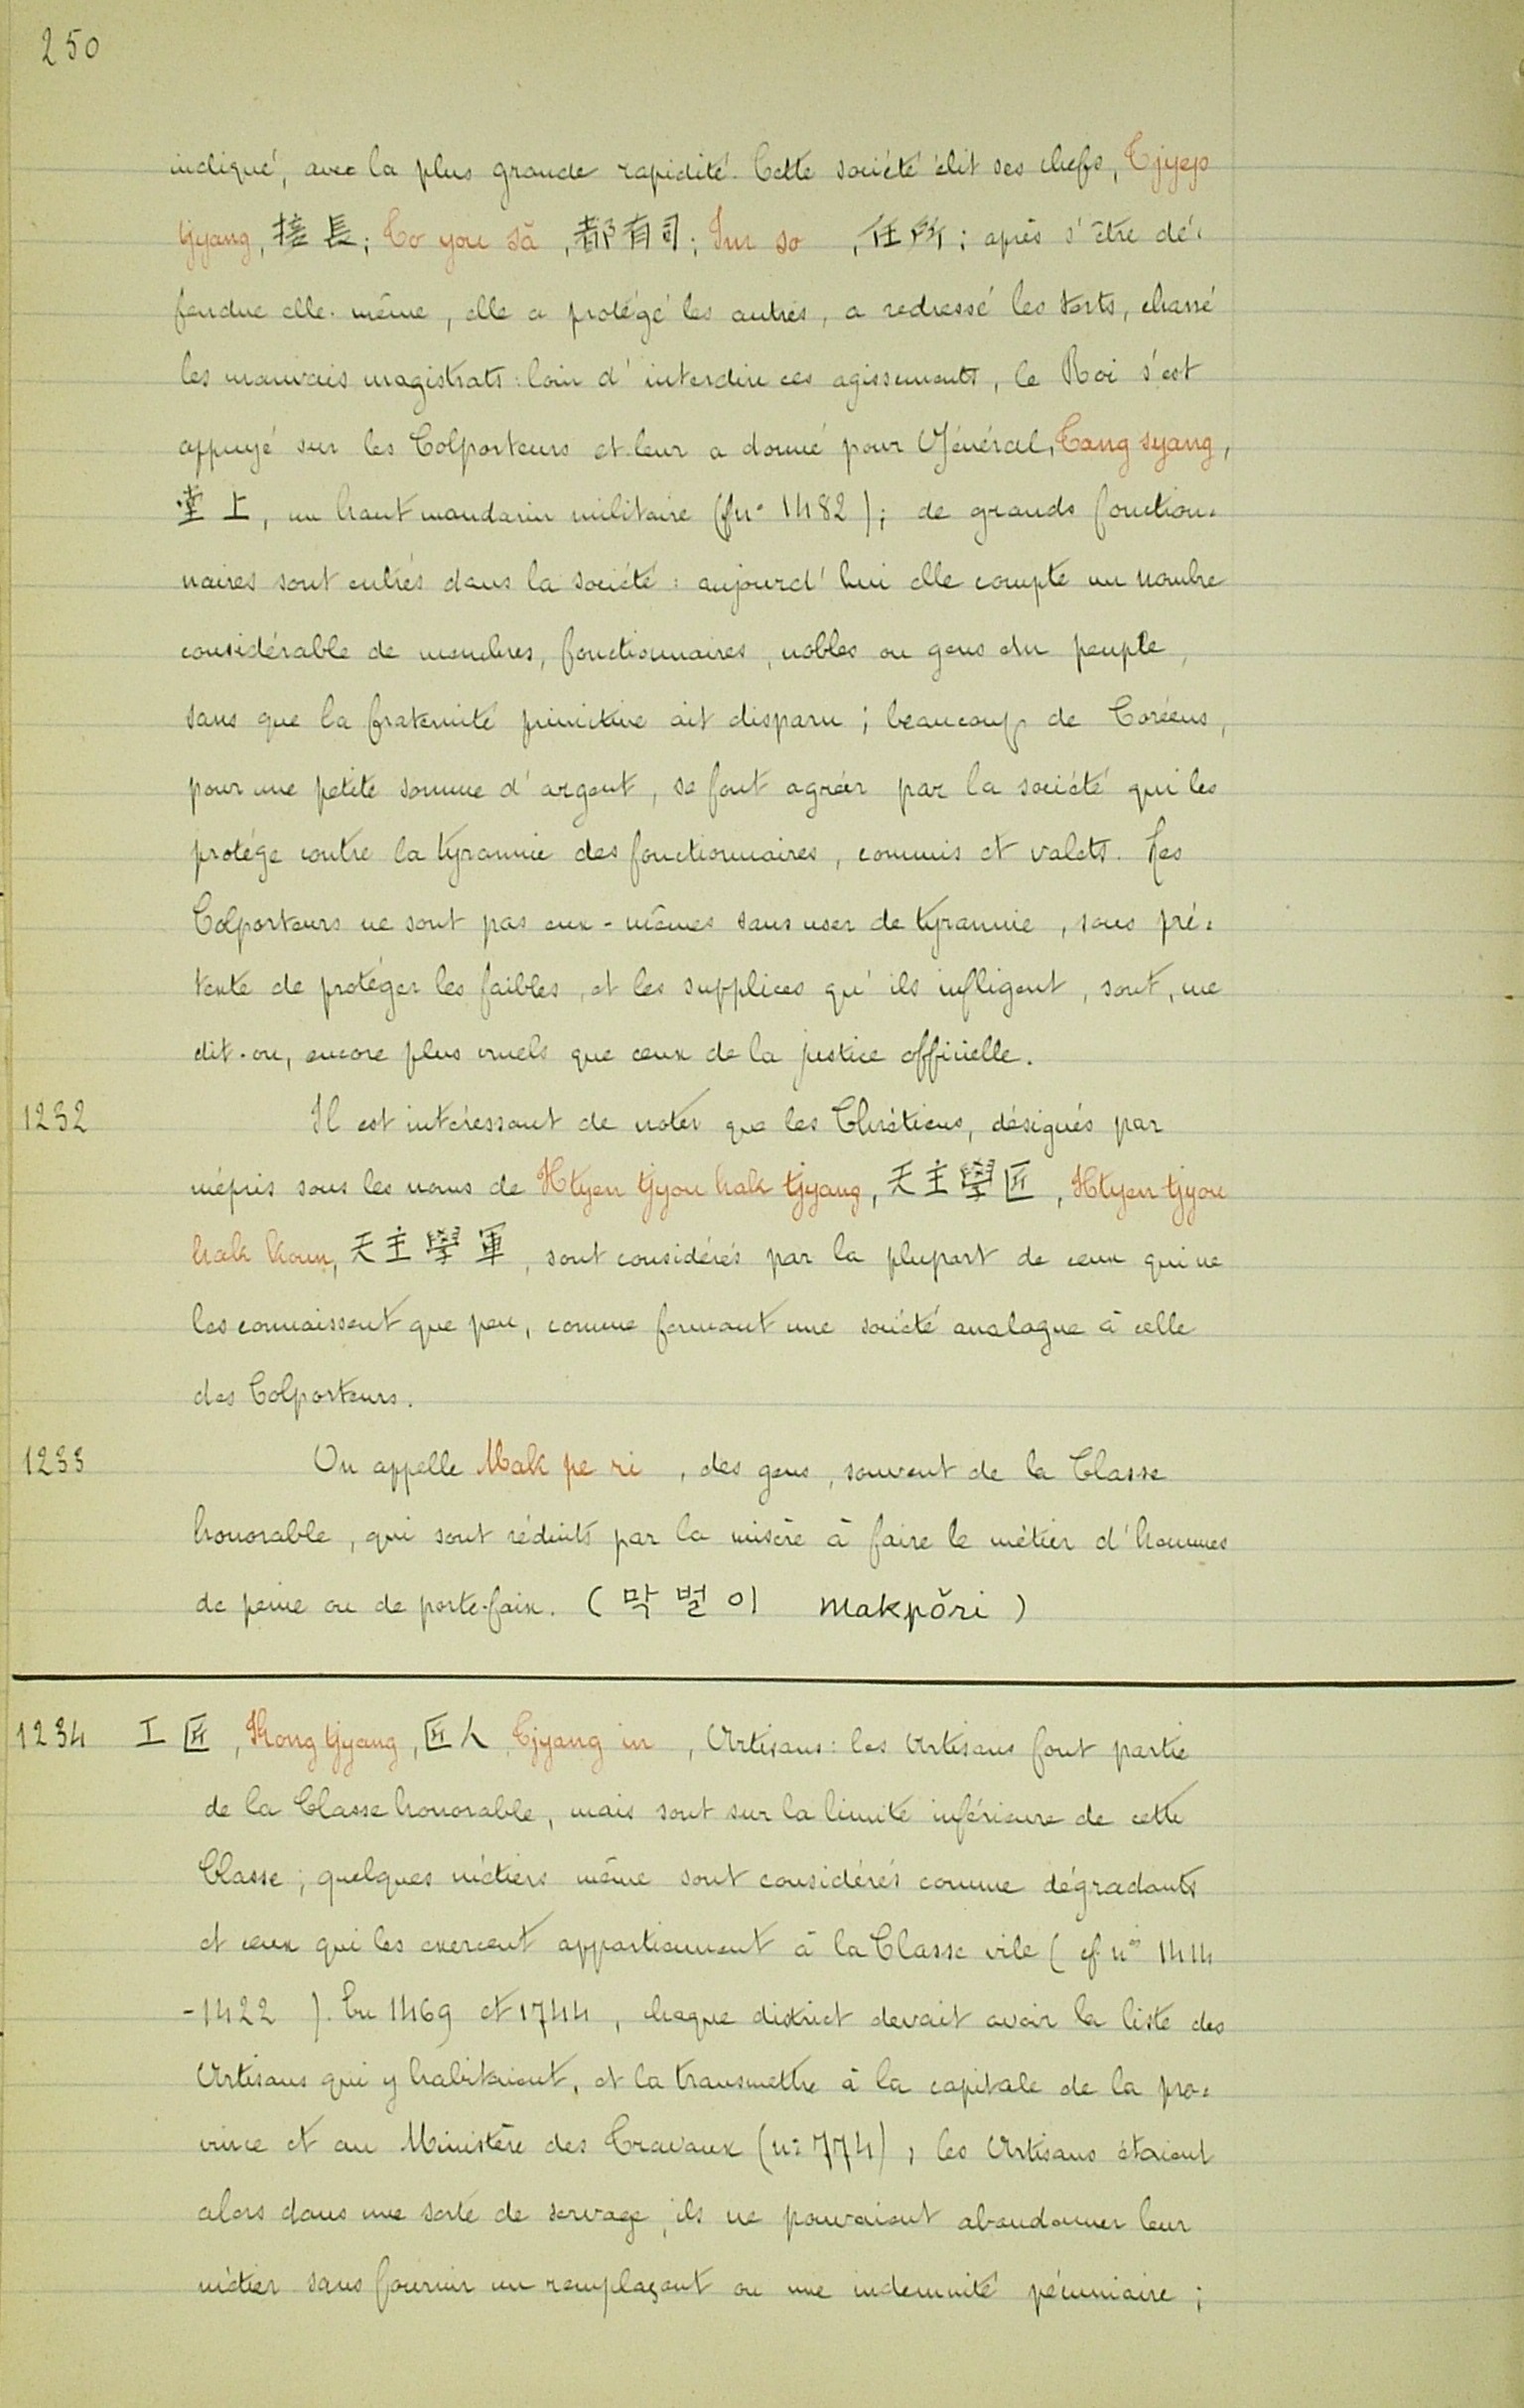 250
indiqué, avec la plus grande rapidité. Cette société élit ses chefs, Tjyep
tjyang, 接長; To you să, 都有司; Im so, 任所; après s'être dé-
fendue elle-même, elle a protégé les autres, a redressé les torts, chassé
les mauvais magistrats: loin d'interdire ces agissements, le Roi s'est
appuyé sur les Colporteurs et leur a donné pour Général, Tang syang,
堂上, un haut mandarin militaire (fn° 1482); de grands fonction-
naires sont entrés dans la société: aujourd'hui elle compte un nombre
considérable de membres, fonctionnaires, nobles ou gens du peuple,
sans que la fraternité primitive ait disparu; beaucoup de Coréens,
pour une petite somme d'argent, se font agréer par la société qui les
protége contre la tyrannie des fonctionnaires, commis et valets. Les
Colporteurs ne sont pas eux-mêmes sans user de tyrannie, sous pré-
texte de protéger les faibles, et les supplices qu'ils infligent, sont, me
dit-on, encore plus cruels que ceux de la justice officielle.
1232 Il est intéressant de noter que les Chrétiens, désignés par
mépris sous les noms de Htyen tjyou hak tjyang, 天主學匠, Htyen tjyou
hak koun, 天主學軍, sont considérés par la plupart de ceux qui ne
les connaissent que peu, comme formant une société analogue à celle
des Colporteurs.
1233 On appelle Mak pe ri, des gens, souvent de la Classe
honorable, qui sont réduits par la misère à faire le métier d'hommes
de peine ou de porte-faix. (막벌이 makpŏri)
1234 工匠, Kong tjyang, 匠人, Tjyang in, Artisans: les Artisans font partie
de la Classe honorable, mais sont sur la limite inférieure de cette
Classe; quelques métiers même sont considérés comme dégradants
et ceux qui les exercent appartiennent à la Classe vile (cf. nos 1414
-1422). En 1469 et 1744, chaque district devait avoir la liste des
Artisans qui y habitaient, et la transmettre à la capitale de la pro-
vince et au Ministère des Travaux (n° 774); les Artisans étaient
alors dans une sorte de servage, ils ne pouvaient abandonner leur
métier sans fournir un remplaçant ou une indemnité pécuniaire;